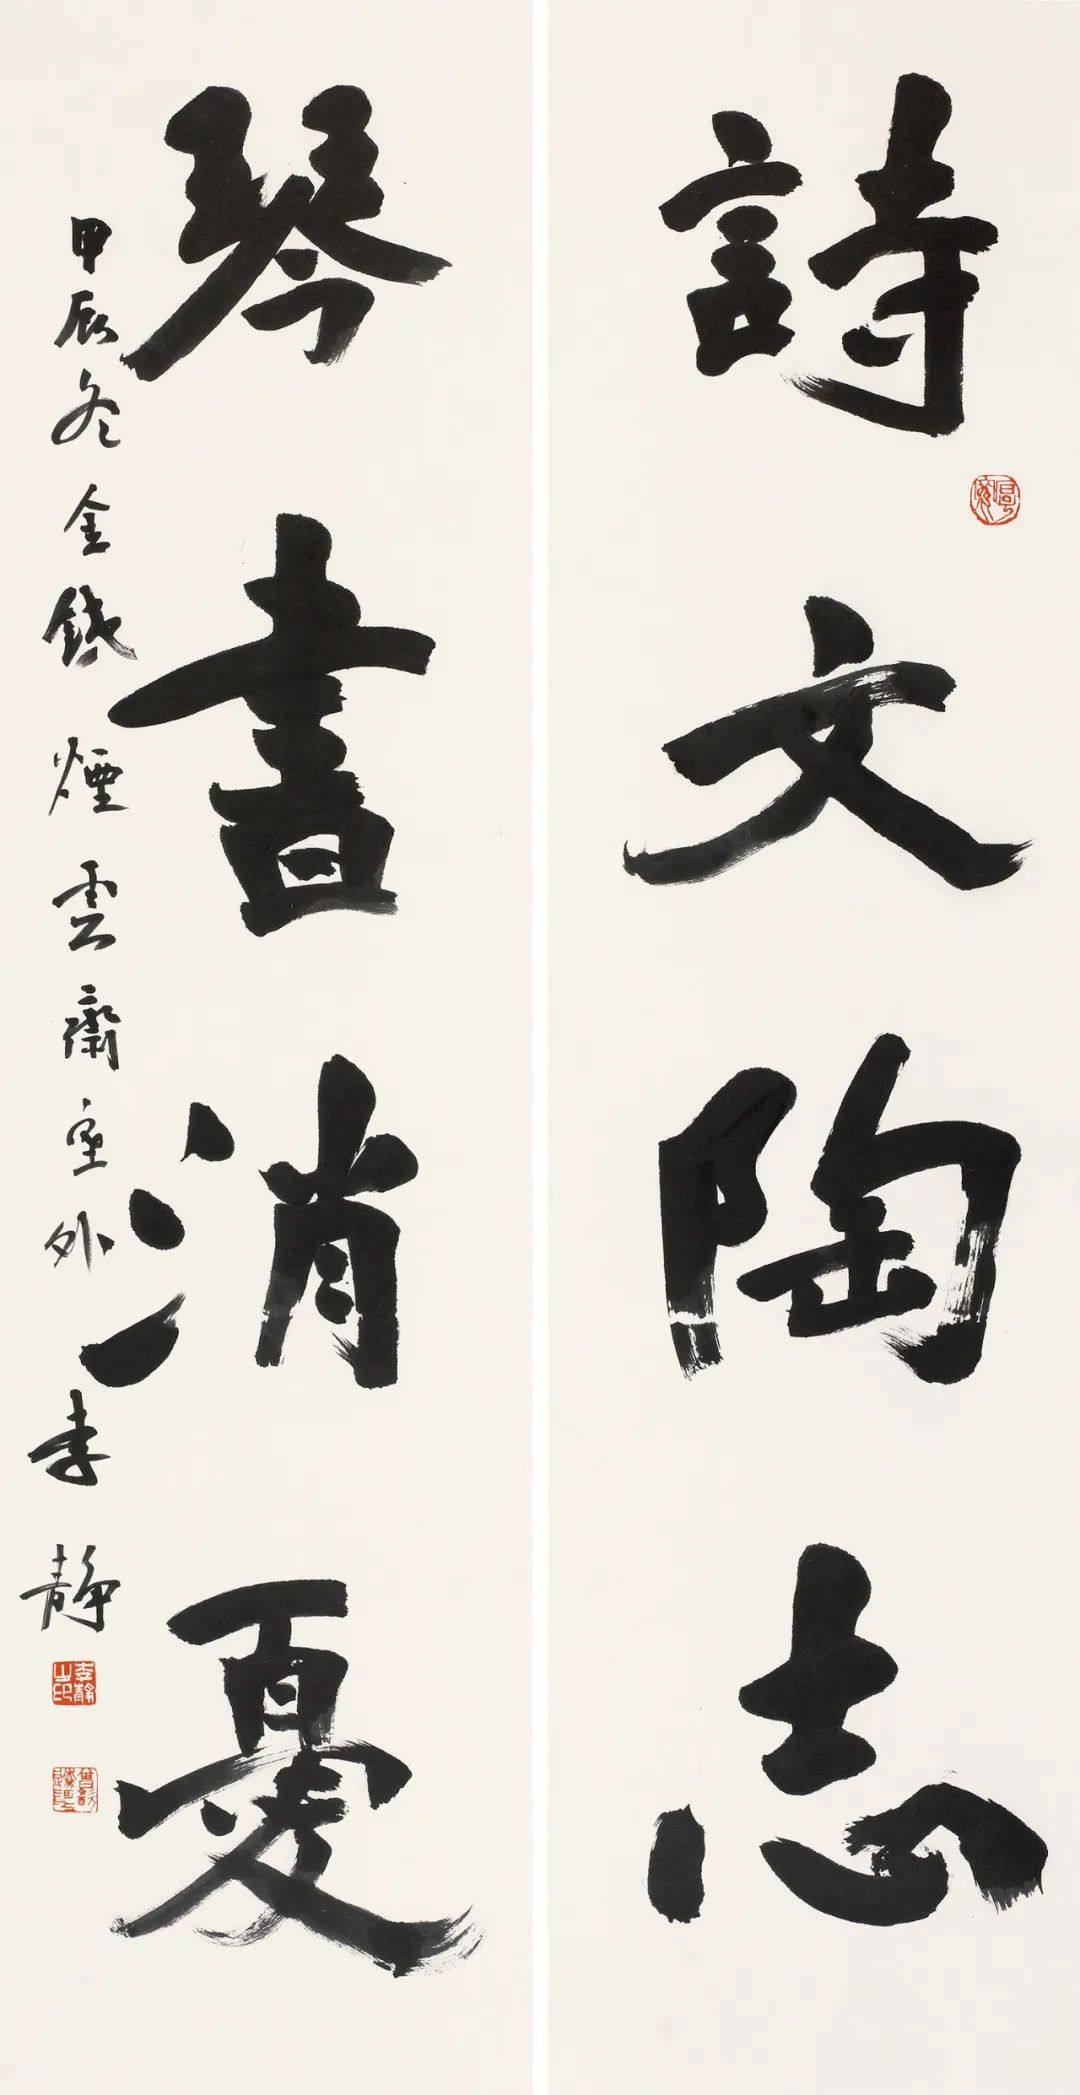 詩文陶志
琴書消憂
甲辰冬金錢煙雲齋室外李靜
李靜之印